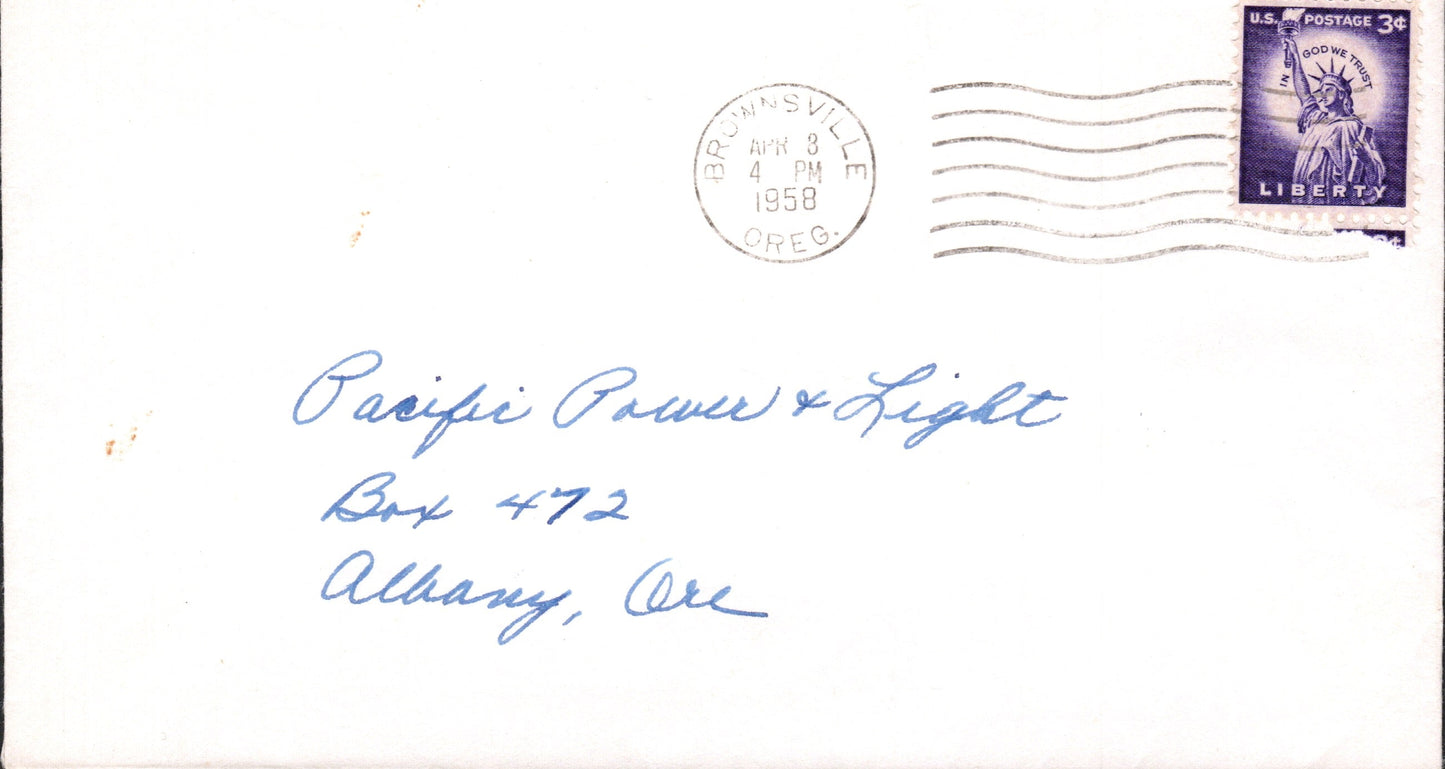 U.S. POSTAGE 3¢
IN GOD WE TRUST
LIBERTY
3¢
BROWNSVILLE
APR 8
4 PM
1958
OREG.
Pacific Power & Light
Box 472
Albany, Ore